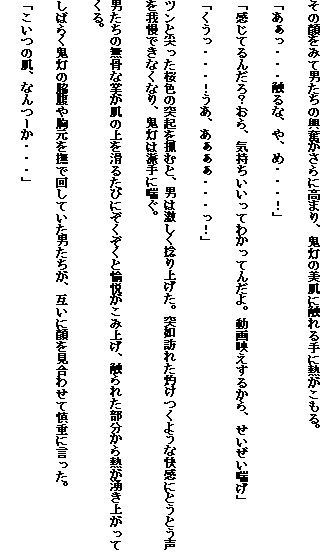 その顔をみて男たちの興奮がさらに高まり、鬼灯の美肌に触れる手に熱がこもる。
「あぁっ・・・触るな、や、め・・・！」
「感じてるんだろ？おら、気持ちいいってわかってんだよ。動画映えするから、せいぜい喘げ」
「くうっ・・・！うあ、あぁぁぁ・・・っ！」
ツンと尖った桜色の突起を掴むと、男は激しく捻り上げた。突如訪れた灼けつくような快感にとうとう声
を我慢できなくなり、鬼灯は派手に喘ぐ。
男たちの無骨な掌が肌の上を滑るたびにぞくぞくと愉悦がこみ上げ、触られた部分から熱が湧き上がって
くる。
しばらく鬼灯の脇腹や胸元を撫で回していた男たちが、互いに顔を見合わせて慎重に言った。
「こいつの肌、なんつーか・・・」